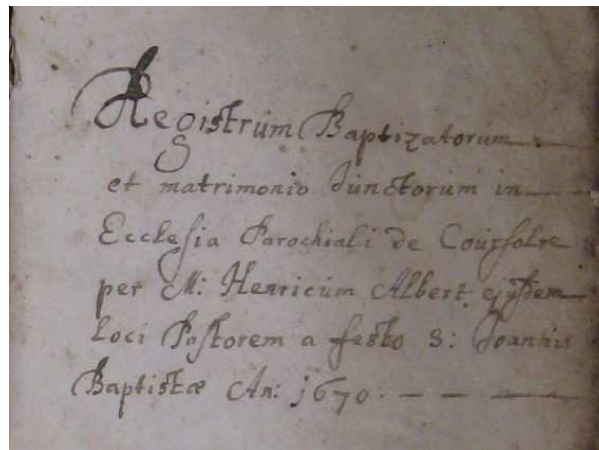 Registrum Baptizatorum
et matrimonio Junctorum in
Ecclesia Parochiali de Coursolre
per M: Henricum Albert ejusdem
loci Pastorem a festo S: Joannis
Baptistæ An: 1670.